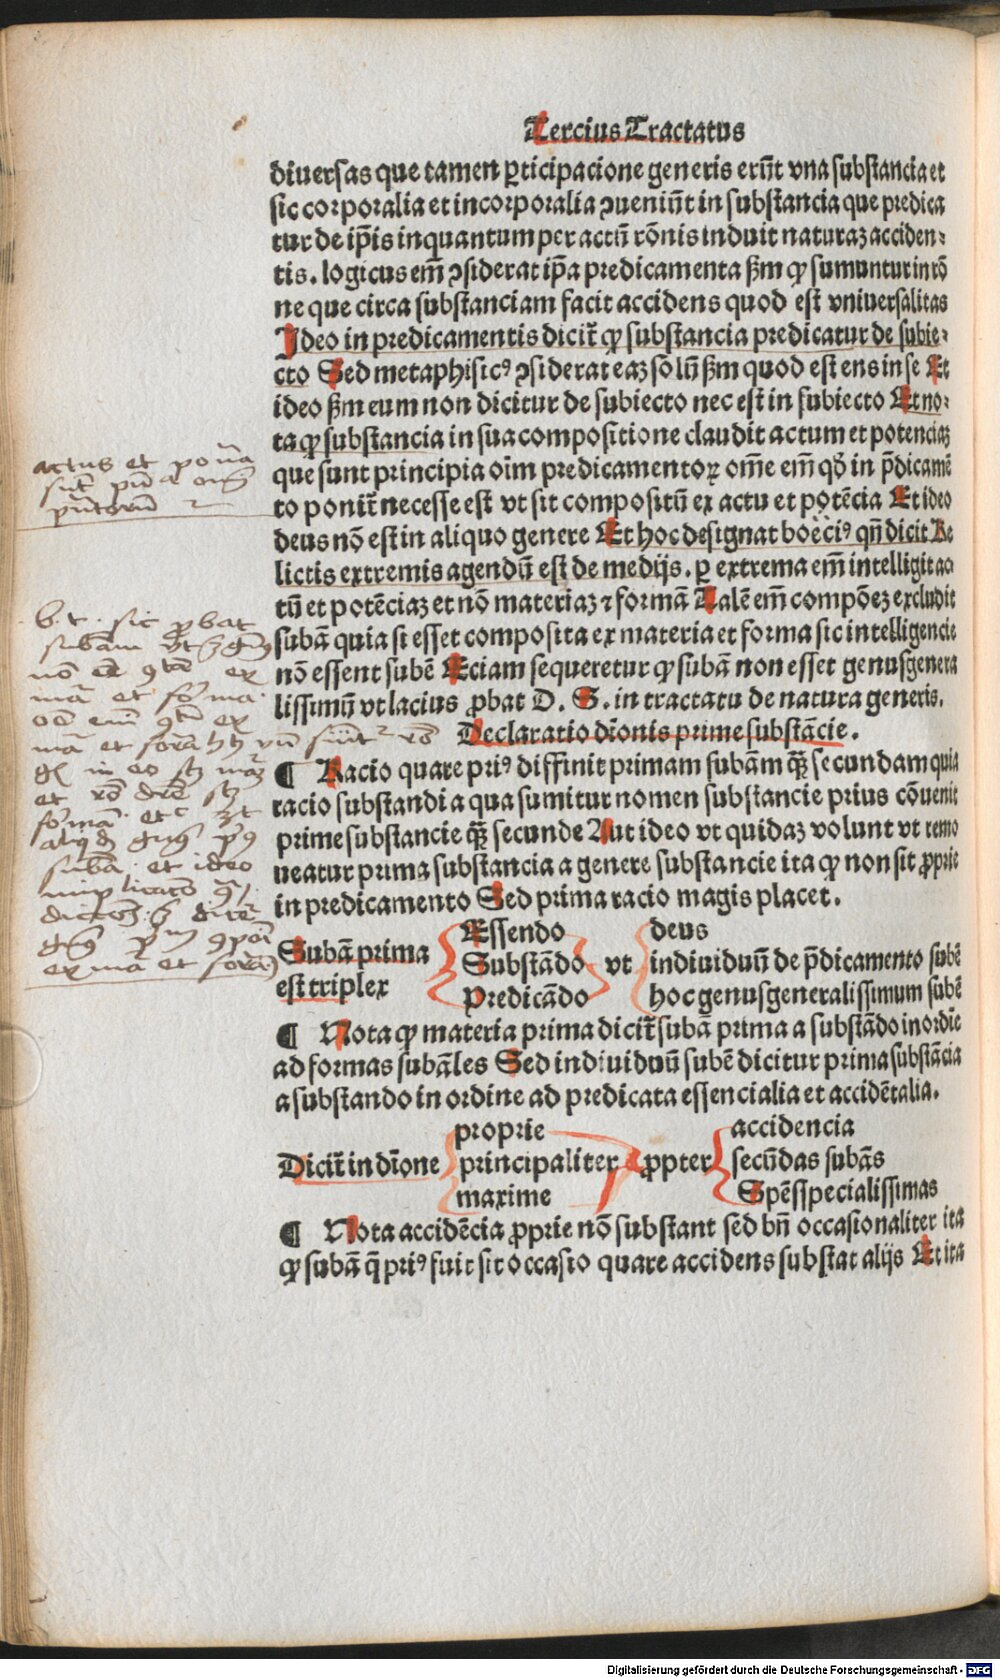 Tercius Tractatus
diuersas que tamen ꝑticipacione generis erũt vna substancia et
sic corporalia et incorporalia ꝯueniũt in substancia que predica
tur de ip̃is inquantum per actũ rõnis induit naturaʒ acciden⸗
tis. logicus em̃ ꝯsiderat ip̃a predicamenta ẞm ꝙ sumuntur in rõ
ne que circa substanciam facit accidens quod est vniuersalitas
Ideo in predicamentis dicit̃ ꝙ substancia predicatur de subie⸗
cto Sed metaphisicꝰ ꝯsiderat eaʒ solũ ẞm quod est ens in se Et
ideo ẞm eum non dicitur de subiecto nec est in subiecto Et no⸗
ta ꝙ substancia in sua compositione claudit actum et potenciaʒ
que sunt principia oim̃ predicamentoꝝ om̃e em̃ qd̃ in p̃dicamẽ
to ponit̃ necesse est vt sit compositũ ex actu et potẽcia Et ideo
deus nõ est in aliquo genere Et hoc designat boecꝰ qñ dicit Re
lictis extremis agendũ est de medijs. ꝑ extrema em̃ intelligit ac
tũ et potẽciaʒ et nõ materiaʒ ⁊ formã Talẽ em̃ compõeʒ excludit
subãm quia si esset composita ex materia et forma sic intelligencie
nõ essent subẽ Eciam sequeretur ꝙ subã non esset genusgenera
lissimũ vt lacius ꝓbat D. S. in tractatu de natura generis.
Declaratio dĩonis prime substãcie.
¶ Racio quare priꝰ diffinit primam subãm qꝫ̃ secundam quia
racio substandi a qua sumitur nomen substancie prius cõuenit
prime substancie qꝫ̃ secunde Aut ideo vt quidaʒ volunt vt remo
ueatur prima substancia a genere substancie ita ꝙ non sit ꝓprie
in predicamento Sed prima racio magis placet.
Subã prima
est triplex
Essendo
Substãdo
Predicãdo
vt
deus
indiuiduũ de p̃dicamento subẽ
hoc genusgeneralissimum subẽ
¶ Nota ꝙ materia prima dicit̃ subã prima a substãdo in ordĩe
ad formas subãles Sed indiuiduũ subẽ dicitur prima substãcia
a substando in ordine ad predicata essencialia et accidẽtalia.
Dicit̃ in dĩone
proprie
principaliter
maxime
ꝓpter
accidencia
secũdas subãs
Spẽsspecialissimas
¶ Nota accidẽcia ꝓprie nõ substant sed bñ occasionaliter ita
ꝙ subã q̃ priꝰ fuit sit occasio quare accidens substat alijs Et ita
actus et
b. t. sic ꝓbat
et forma
et ideo
ex mã et formã
Digitalisierung gefördert durch die Deutsche Forschungsgemeinschaft - DFG